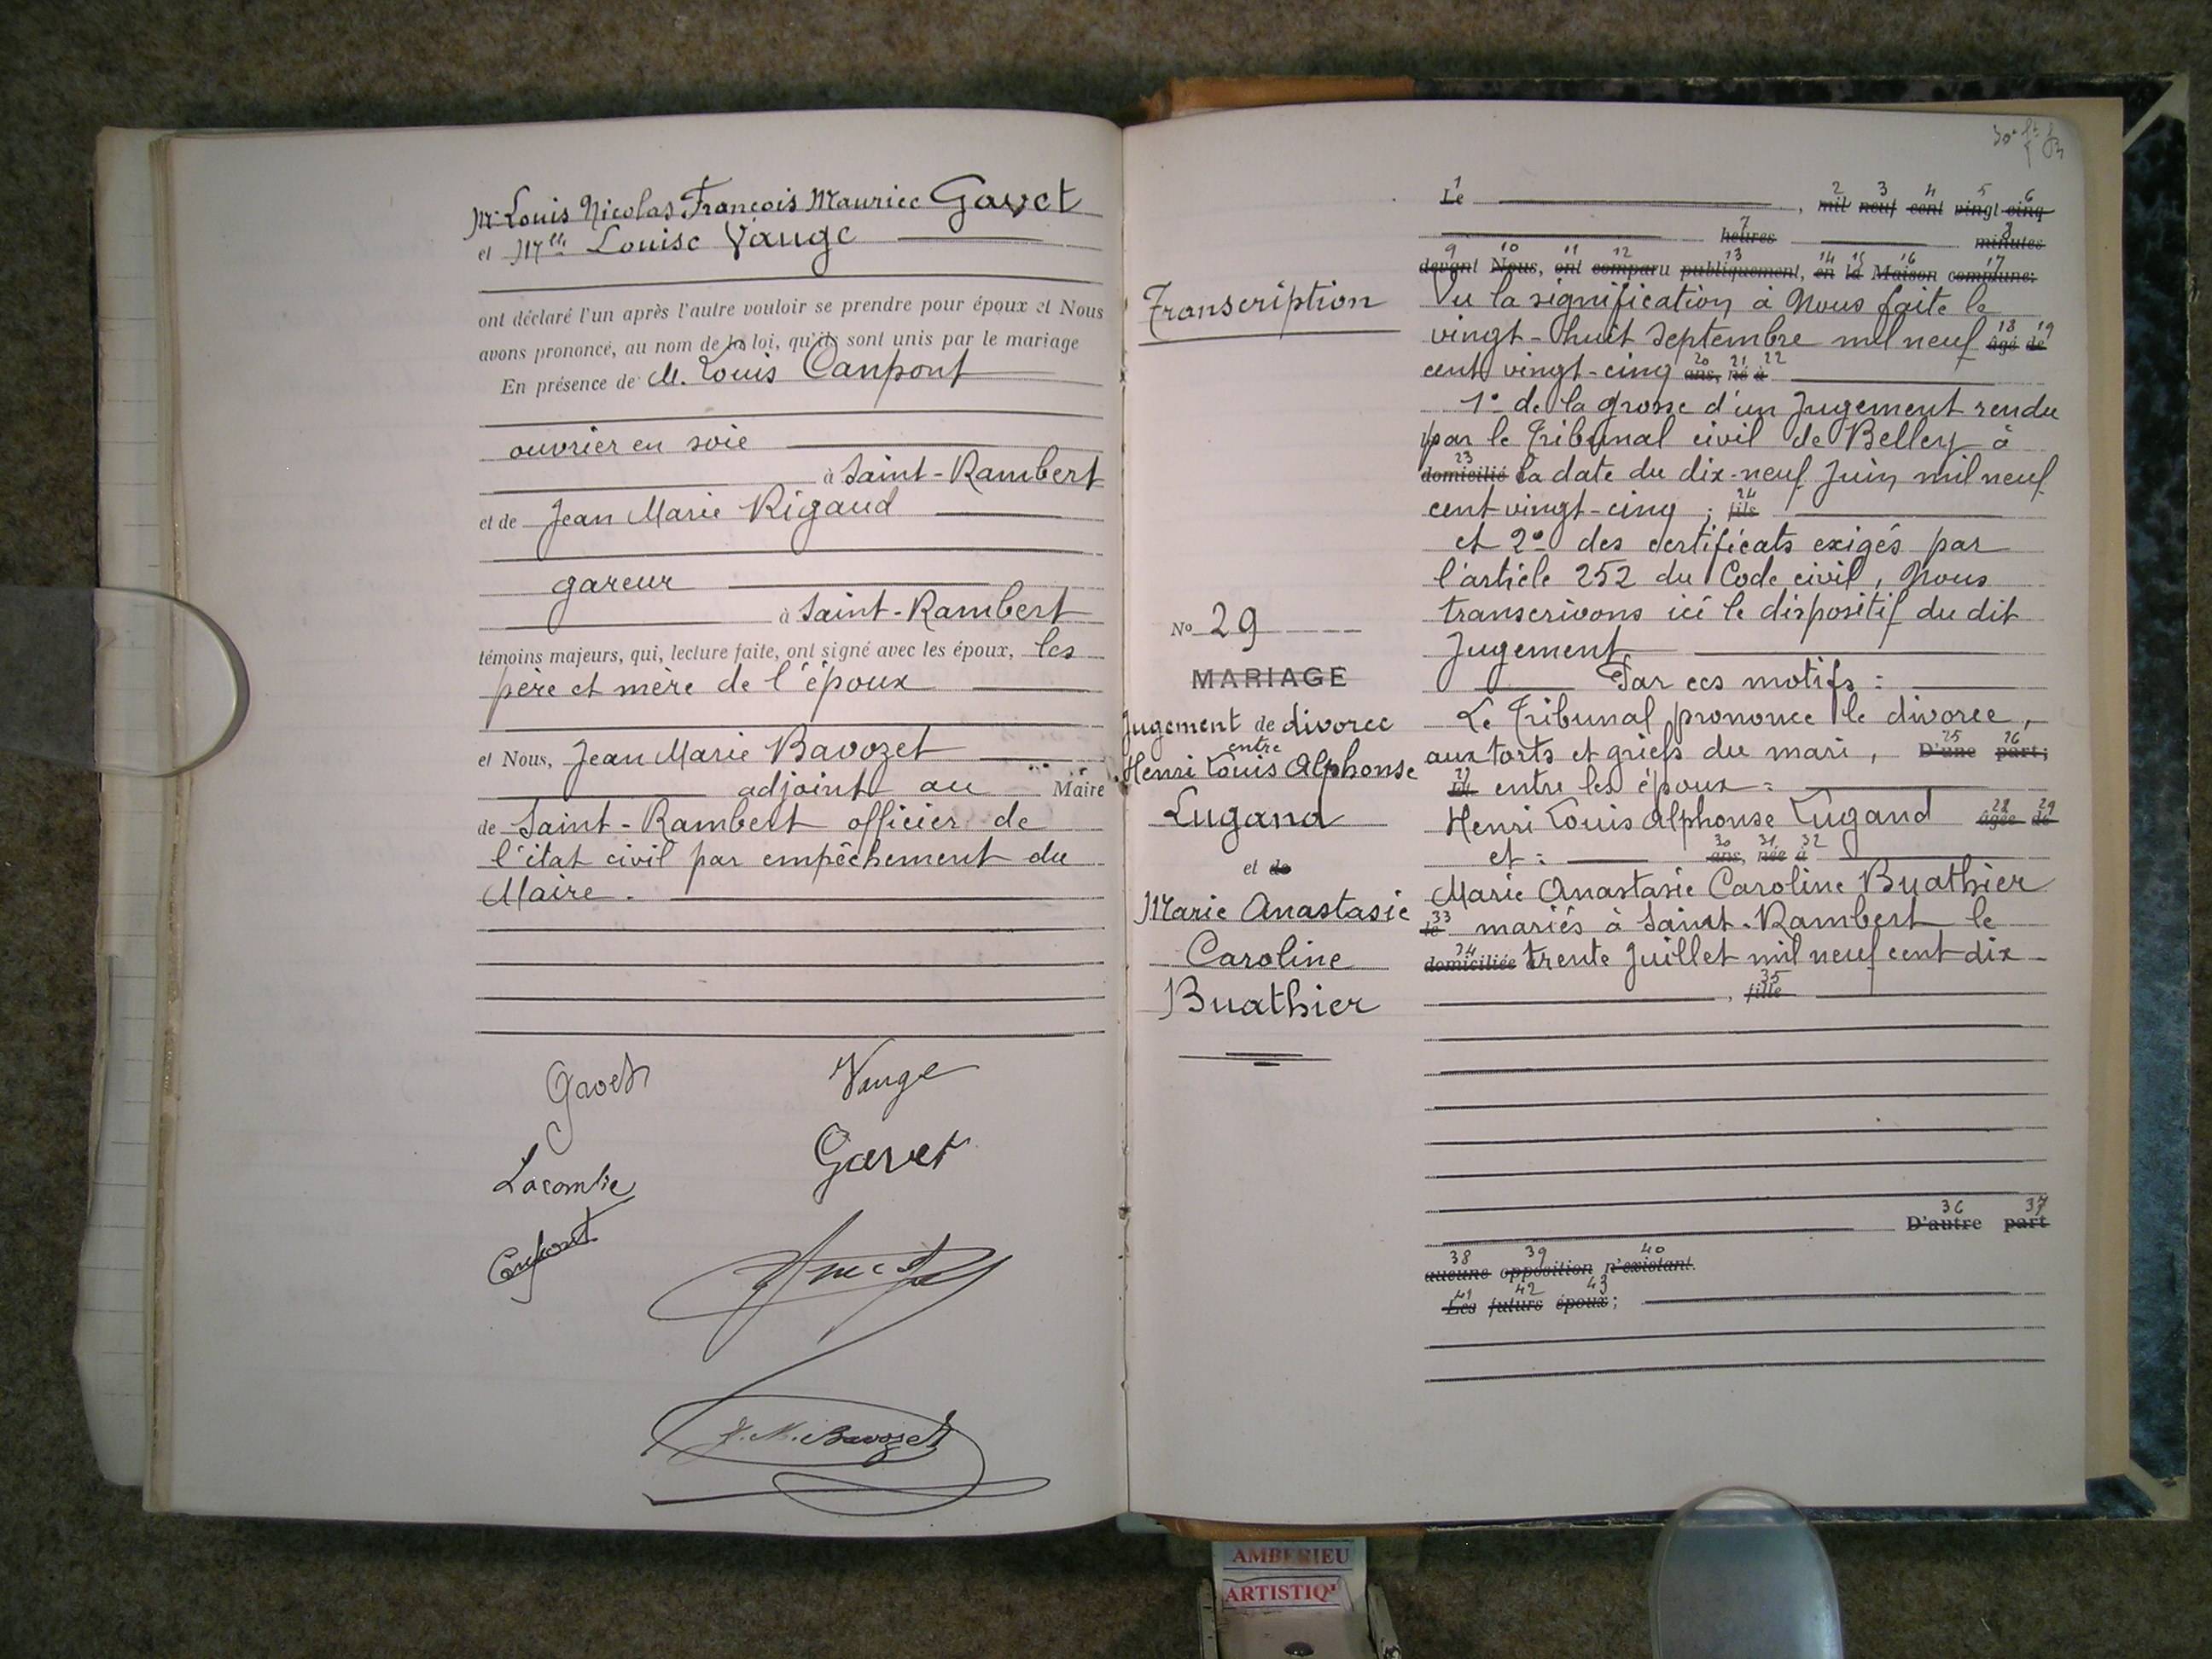 Mr Louis Nicolas François Maurice Gavet
et Mlle Louise Vauge
ont déclaré l'un après l'autre vouloir se prendre pour époux et Nous
avons prononcé, au nom de la loi, qu'ils sont unis par le mariage
En présence de M. Louis Canpont
ouvrier en soie
à Saint-Rambert
et de Jean Marie Rigaud
gareur
à Saint-Rambert
témoins majeurs, qui, lecture faite, ont signé avec les époux, les
père et mère de l'époux
et Nous, Jean Marie Bavozet
adjoint au Maire
de Saint-Rambert officier de
l'état civil par empêchement du
Maire.
Gavet Vauge
Lacombe Gavet
J. M. Bavozet
Transcription
No 29
MARIAGE
Jugement de divorce
entre
Henri Louis Alphonse
Lugand
et de
Marie Anastasie
Caroline
Buathier
1 2 3 4 5 6
Le , mil neuf cent vingt-cinq
7 8
heures minutes
9 10 11 12 13 14 15 16 17
devant Nous, ont comparu publiquement, en la Maison commune:
Vu la signification à Nous faite le
18 19
vingt-huit Septembre mil neuf âgé de
20 21 22
cent vingt-cinq ans, né à
1° de la grosse d'un Jugement rendu
par le Tribunal civil de Belley à
23
domicilié la date du dix-neuf Juin mil neuf
24
cent vingt-cinq ; fils
et 2° des certificats exigés par
l'article 252 du Code civil, Nous
transcrivons ici le dispositif du dit
Jugement
Par ces motifs :
Le Tribunal prononce le divorce,
25 26
aux torts et griefs du mari, D'une part;
27
Et entre les époux :
28 29
Henri Louis Alphonse Lugand âgée de
30 31 32
et : ans, née à
Marie Anastasie Caroline Buathier
33
le mariés à Saint-Rambert le
34
domiciliée trente Juillet mil neuf cent dix
35
, fille
36 37
D'autre part
38 39 40
aucune opposition n'existant.
41 42 43
Les futurs époux;
AMBERIEU
ARTISTIQ